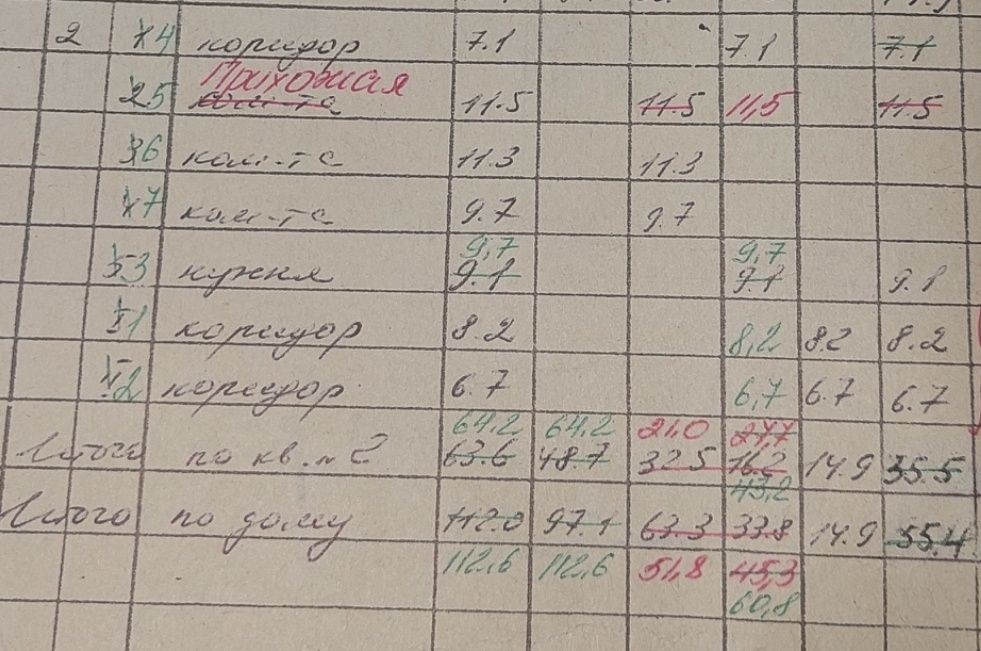 2 4 коридор 7.1 7.1 7.1
Прихожая
25 ком-та 11.5 11.5 11,5 11.5
36 ком-та 11.3 11.3
47 ком-та 9.7 9.7
9,7 9,7
53 кухня 9.1 9.1 9.1
1 коридор 8.2 8,2 8.2 8.2
2 коридор 6.7 6,7 6.7 6.7
64.2 64.2 21,0 27,7
Итого по кв. № 2 63.6 48.7 32.5 16.2 14.9 35.5
43,2
Итого по дому 112.0 97.1 63.3 33.8 14.9 55.4
112,6 112,6 51,8 45,3
60,8